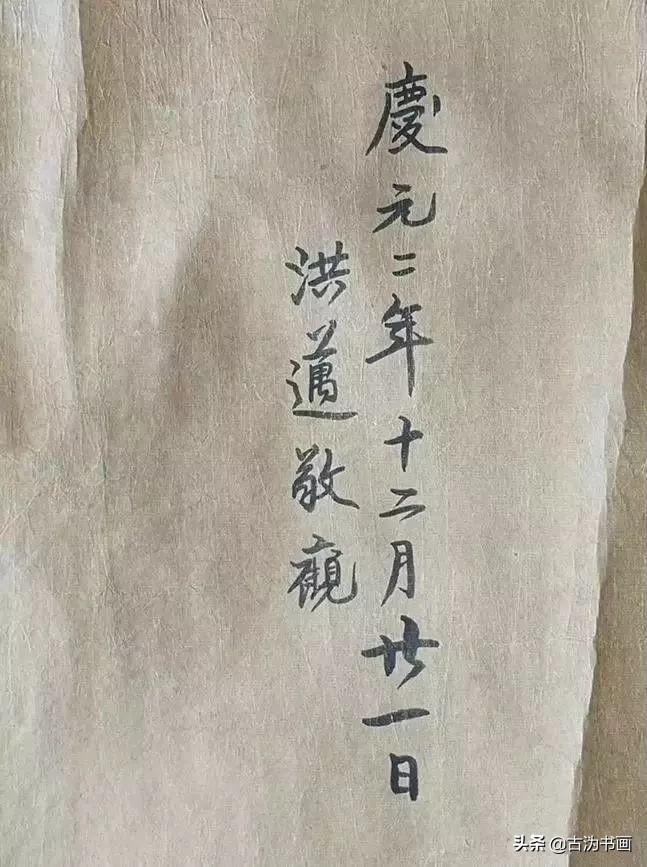 慶元二年十二月廿一日
洪邁敬觀
头条@古沩书画